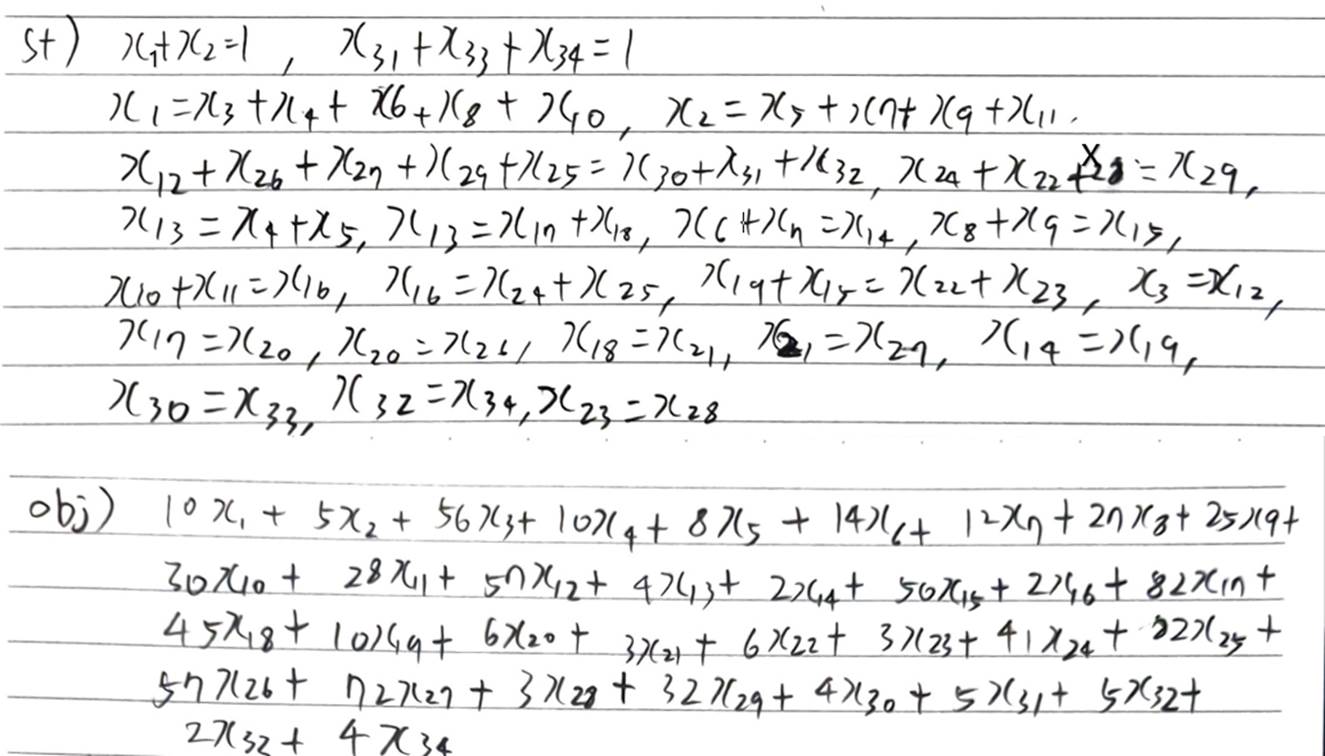 st) x₁+x₂=1 , x₃₁+x₃₃+x₃₄=1
x₁=x₃+x₄+x₆+x₈+x₁₀, x₂=x₅+x₇+x₉+x₁₁.
x₁₂+x₂₆+x₂₇+x₂₉+x₂₅=x₃₀+x₃₁+x₃₂, x₂₄+x₂₂+x₂₈=x₂₉,
x₁₃=x₄+x₅, x₁₃=x₁₇+x₁₈, x₆+x₇=x₁₄, x₈+x₉=x₁₅,
x₁₀+x₁₁=x₁₆, x₁₆=x₂₄+x₂₅, x₁₉+x₁₅=x₂₂+x₂₃, x₃=x₁₂,
x₁₇=x₂₀, x₂₀=x₂₆, x₁₈=x₂₁, x₂₁=x₂₇, x₁₄=x₁₉,
x₃₀=x₃₃, x₃₂=x₃₄, x₂₃=x₂₈
obj) 10x₁+5x₂+56x₃+10x₄+8x₅+14x₆+12x₇+27x₈+25x₉+
30x₁₀+28x₁₁+57x₁₂+4x₁₃+2x₁₄+50x₁₅+2x₁₆+82x₁₇+
45x₁₈+10x₁₉+6x₂₀+3x₂₁+6x₂₂+3x₂₃+41x₂₄+22x₂₅+
57x₂₆+72x₂₇+3x₂₈+32x₂₉+4x₃₀+5x₃₁+5x₃₂+
2x₃₂+4x₃₄